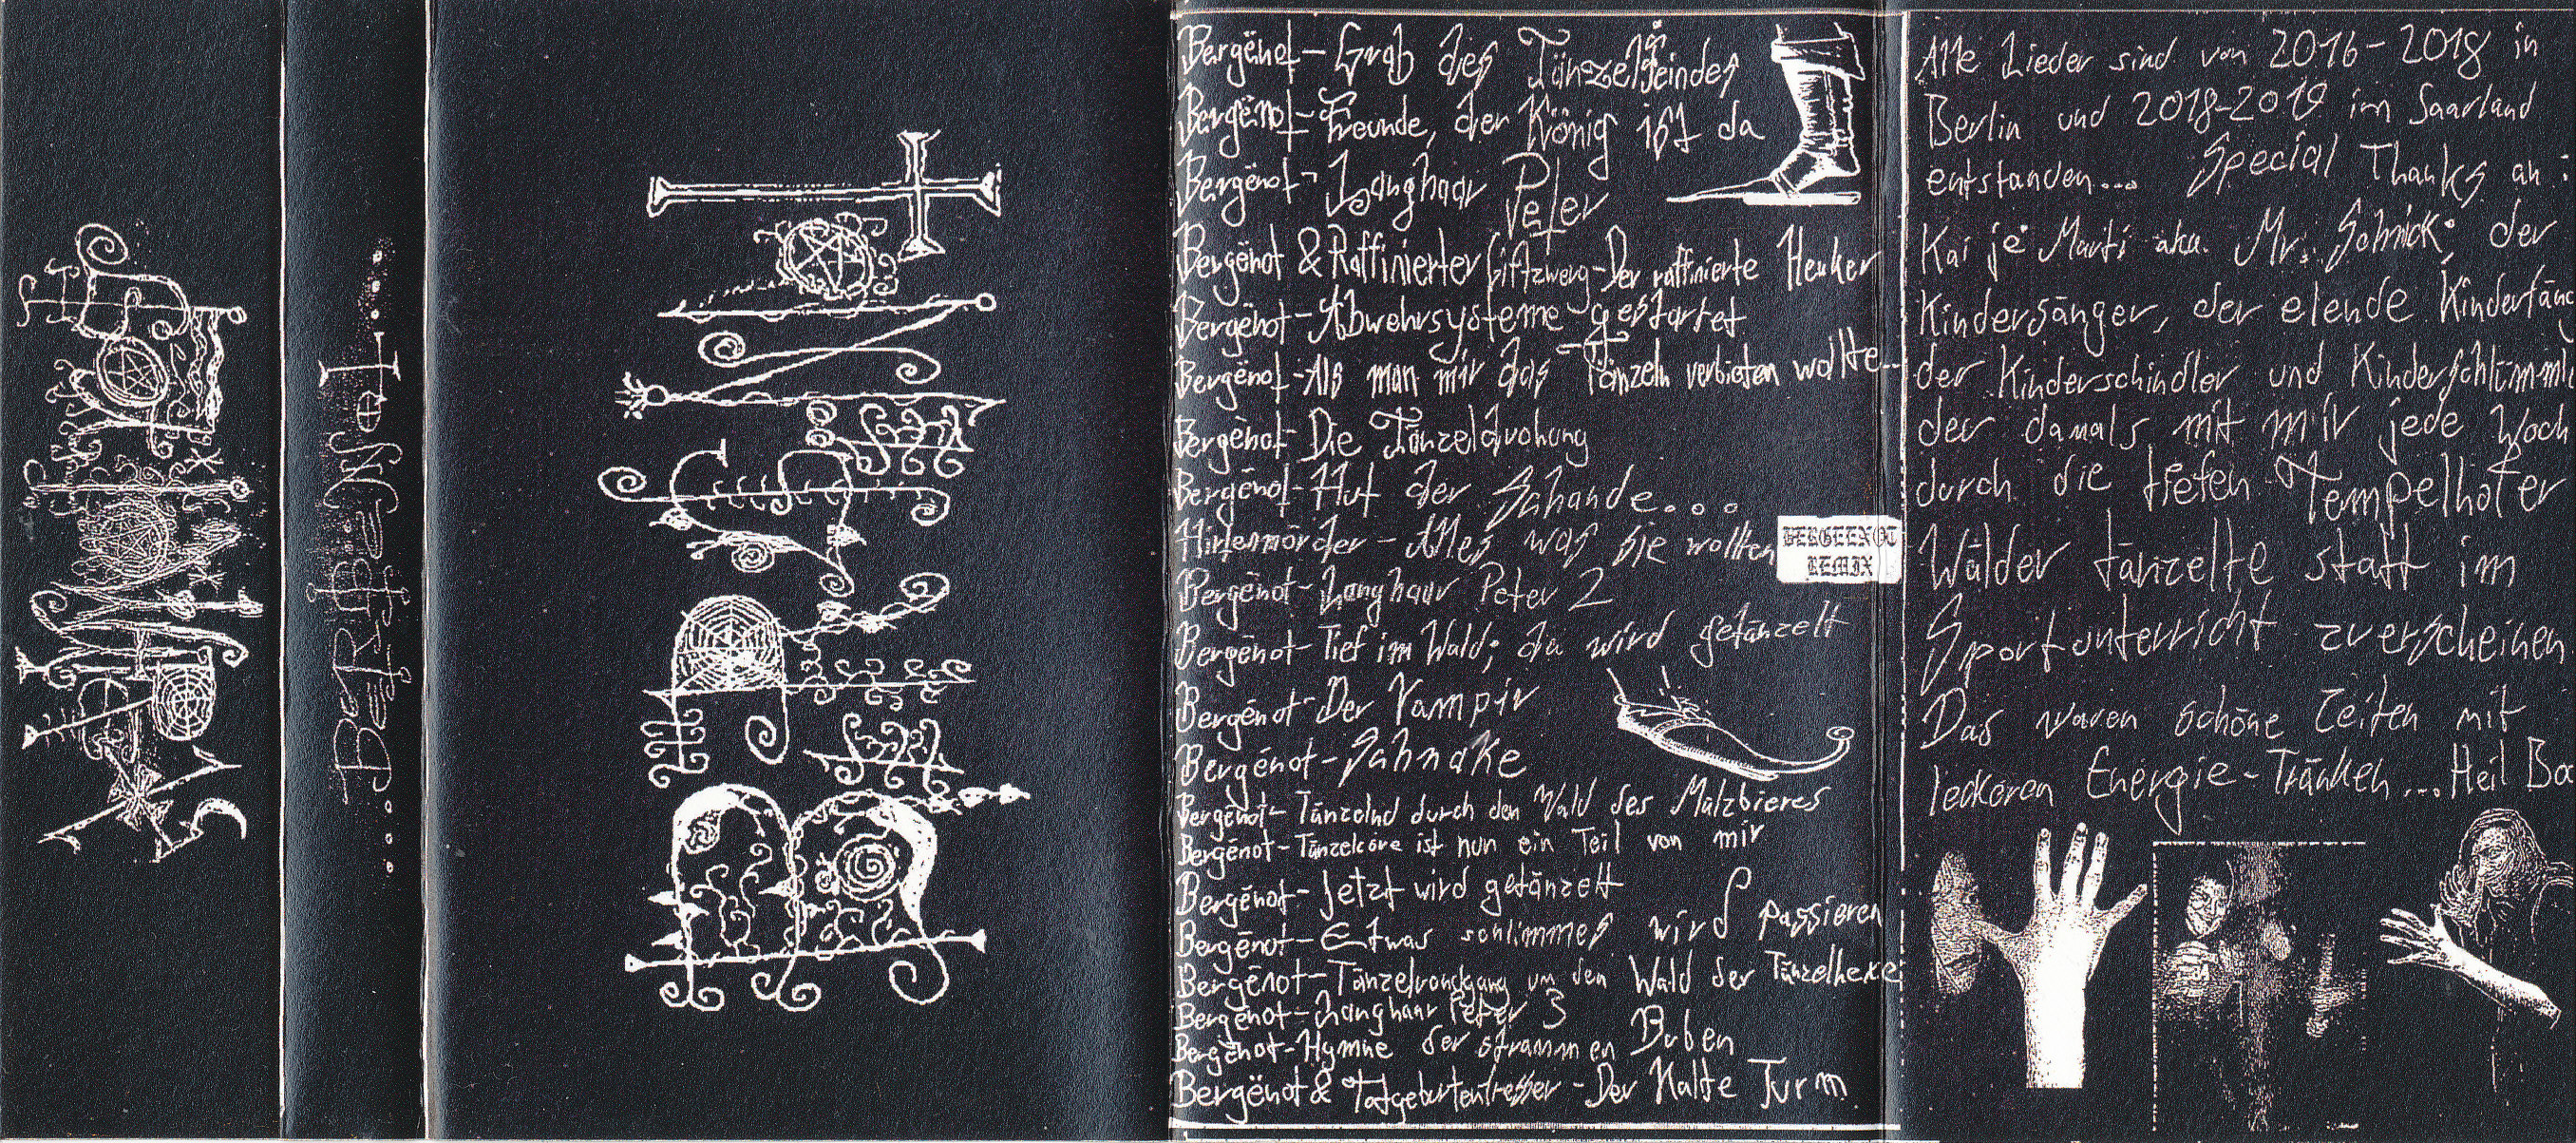 BERGËNOT
Bergënot - Grab des Tänzelfeindes
Bergënot - Freunde, der König ist da
Bergënot - Langhaar Peter
Bergënot & Raffinierter Giftzwerg - Der raffinierte Henker
Bergënot - Abwehrsysteme gestartet
Bergënot - Als man mir das Tänzeln verbieten wollte...
Bergënot - Die Tänzeldrohung
Bergënot - Hut der Schande...
Hirtenmörder - Alles was sie wollten BERGEENOT REMIX
Bergënot - Langhaar Peter 2
Bergënot - Tief im Wald; da wird getänzelt
Bergënot - Der Vampir
Bergënot - Schnake
Bergënot - Tänzelnd durch den Wald des Malzbieres
Bergënot - Tänzelcore ist nun ein Teil von mir
Bergënot - Jetzt wird getänzelt
Bergënot - Etwas schlimmes wird passieren
Bergënot - Tänzelrundgang um den Wald der Tänzelhexe
Bergënot - Langhaar Peter 3
Bergënot - Hymne der strammen Buben
Bergënot & Totgeburtenfresser - Der Kalte Turm
Alle Lieder sind von 2016 - 2018 in
Berlin und 2018-2019 im Saarland
entstanden... Special Thanks an:
Kai je Marti aka. Mr. Schnick; der
Kindersänger, der elende Kinderfäng
der Kinderschindler und Kinderschlimm
der damals mit mir jede Woch
durch die tiefen Tempelhofer
Wälder tänzelte statt im
Sportunterricht zu erscheinen
Das waren schöne Zeiten mit
leckeren Energie-Tränken... Heil Ba